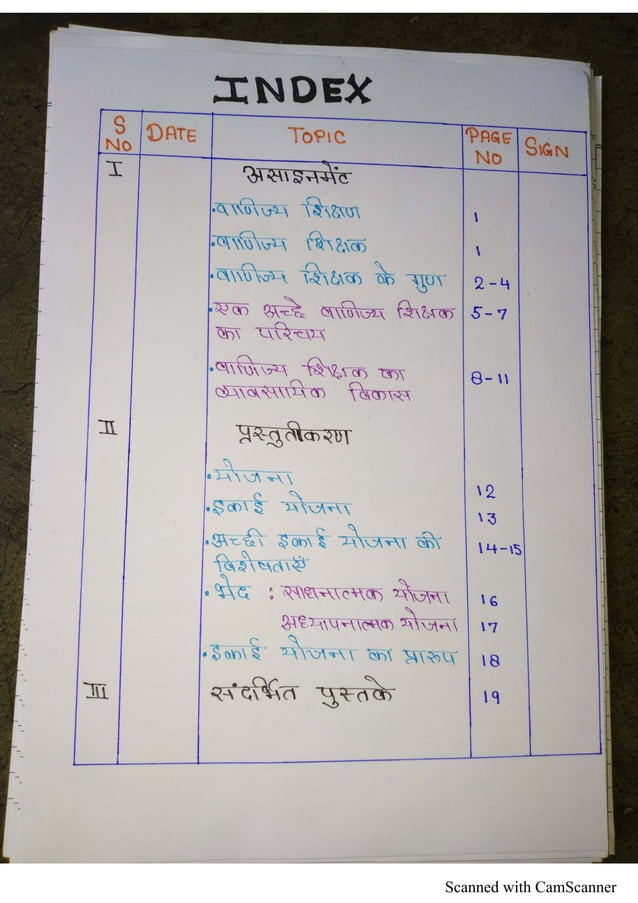 INDEX
S NO DATE TOPIC PAGE NO SIGN
I असाइनमेंट
•वाणिज्य शिक्षण 1
•वाणिज्य शिक्षक 1
•वाणिज्य शिक्षक के गुण 2-4
•एक अच्छे वाणिज्य शिक्षक 5-7
का परिचय
•वाणिज्य शिक्षक का 8-11
व्यावसायिक विकास
II प्रस्तुतीकरण
•योजना 12
•इकाई योजना 13
•अच्छी इकाई योजना की 14-15
विशेषताएँ
•भेद : साधनात्मक योजना 16
अध्यापनात्मक योजना 17
•इकाई योजना का प्रारूप 18
III संदर्भित पुस्तके 19
Scanned with CamScanner